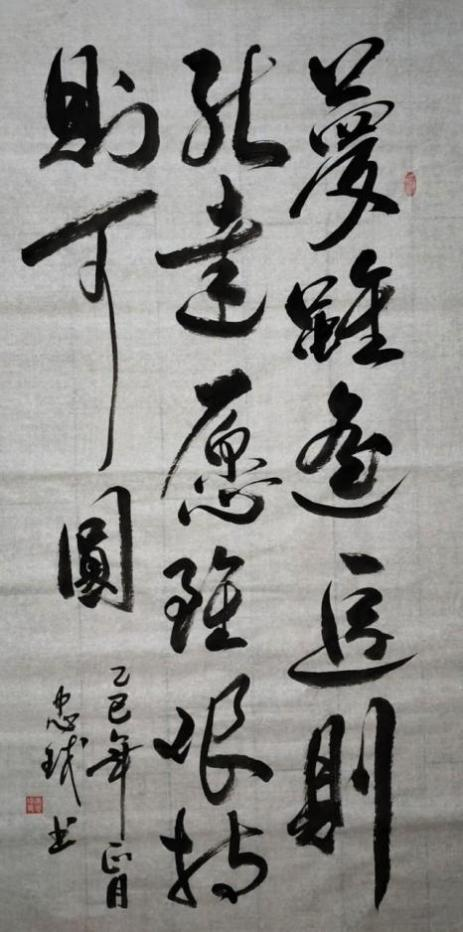 夢雖遙追則
能達愿雖艰持
則可圓
乙巳年正月
忠书